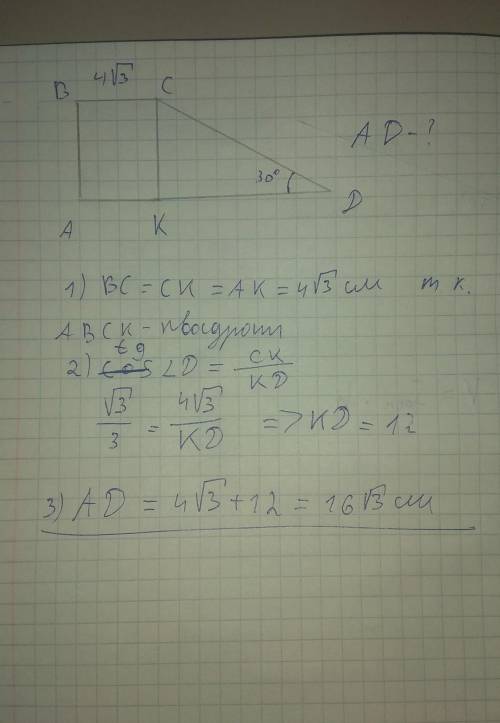 4√3
B C
AD - ?
30°
D
A K
1) BC = CK = AK = 4√3 см т к.
ABCK - квадрат
tg
2) cos ∠D = CK/KD
√3/3 = 4√3/KD => KD = 12
3) AD = 4√3 + 12 = 16√3 см